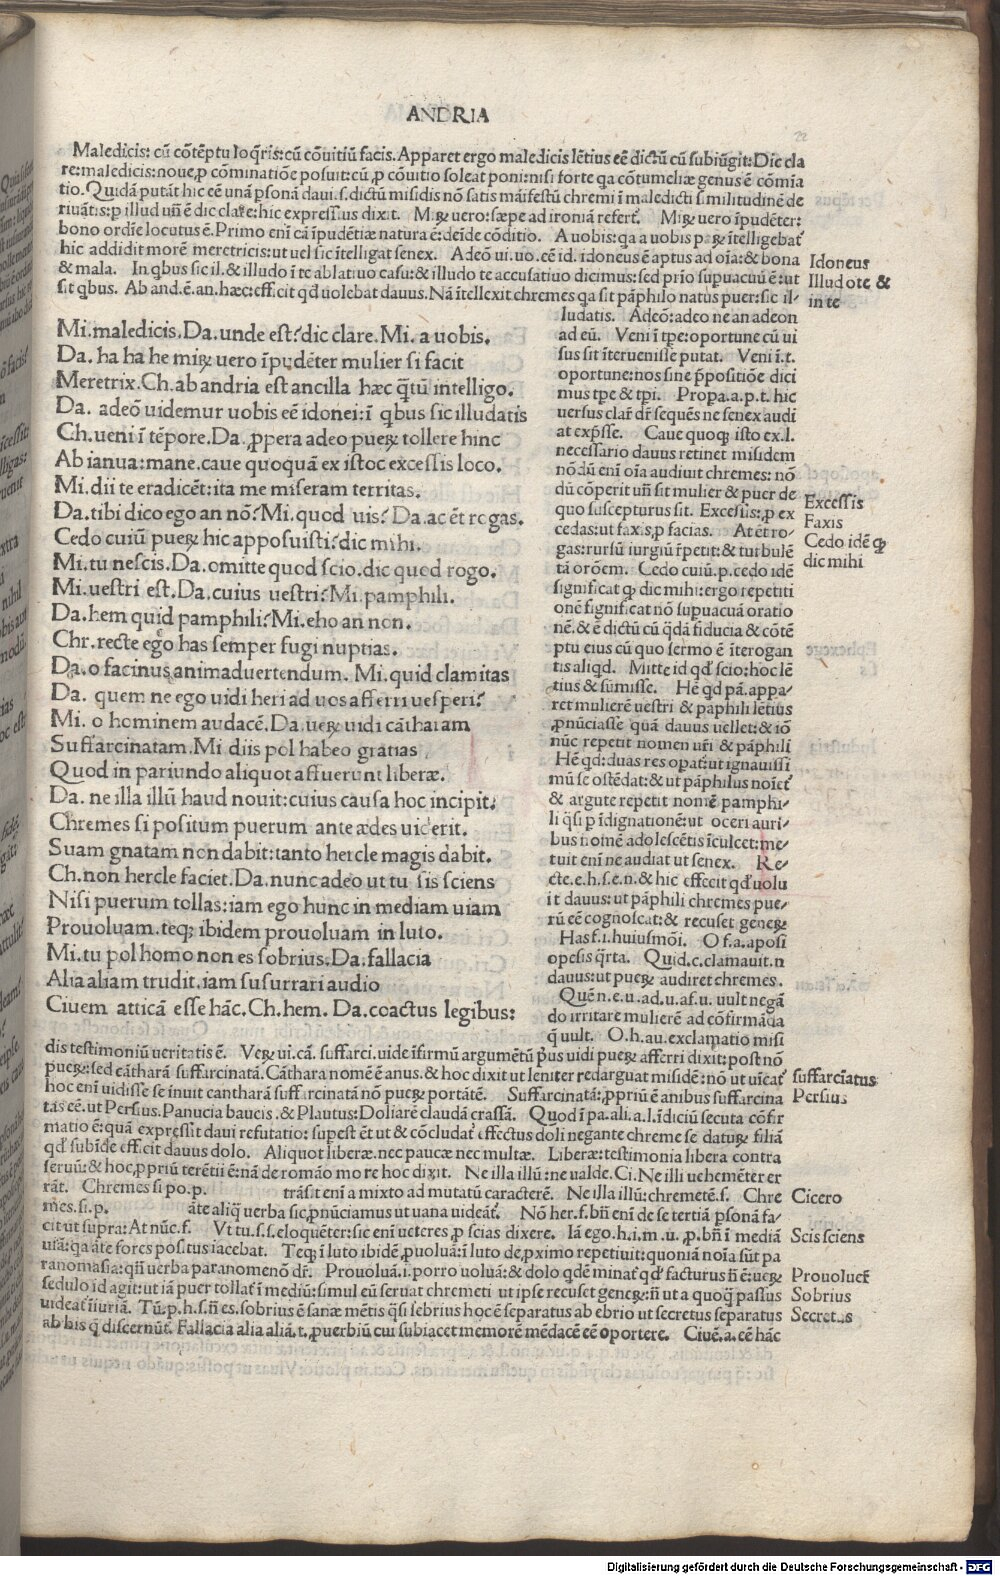 ANDRIA
22
Maledicis: cū cōtēptu loq̄ris: cū cōuitiū facis. Apparet ergo maledicis lētius eē dictū cū subiūgit: Dic cla
re: maledicis: noue, ꝓ cōminatiōe posuit: cū, ꝓ cōuitio soleat poni: nisi forte qa cōtumeliæ genus ē cōmia
tio. Quidā putāt hic eē unā ꝑsonā daui. s. dictū misidis nō satis māifestū chremi ī maledicti similitudinē de
riuātis: ꝑ illud uñ ē dic clare: hic expressius dixit. Miꝝ uero: sæpe ad ironiā refert᷑. Miꝝ uero īpudēter:
bono ordīe locutus ē. Primo eni cā īpudētiæ natura ē: deīde cōditio. A uobis: qa a uobis paꝝ ītelligebat᷑
hic addidit morē meretricis: ut uel sic ītelligat senex. Adeō ui. uo. cē id. idoneus ē aptus ad oīa: & bona
& mala. In qbus sic il. & illudo ī te ablatiuo casu: & illudo te accusatiuo dicimus: sed prio supuacuū ē: ut
sit qbus. Ab and. ē. an. hæc: efficit qd uolebat dauus. Nā ītellexit chremes qa sit pāphilo natus puer: sic il-
Idoneus
Illudo te &
in te
Mi. maledicis. Da. unde est? dic clare. Mi. a uobis.
Da. ha ha he miꝝ uero īpudēter mulier si facit
Meretrix. Ch. ab andria est ancilla hæc q̄tū intelligo.
Da. adeō uidemur uobis eē idonei: ī qbus sic illudatis
Ch. ueni ī tēpore. Da. ꝓpera adeo pueꝝ tollere hinc
Ab ianua: mane. caue quoquā ex istoc excessis loco.
Mi. dii te eradicēt: ita me miseram territas.
Da. tibi dico ego an nō? Mi. quod uis? Da. ac ēt rogas.
Cedo cuiū pueꝝ hic apposuisti? dic mihi.
Mi. tu nescis. Da. omitte quod scio. dic quod rogo.
Mi. uestri est. Da. cuius uestri? Mi. pamphili.
Da. hem quid pamphili? Mi. eho an non.
Chr. recte ego has semper fugi nuptias.
Da. o facinus animaduertendum. Mi. quid clamitas
Da. quem ne ego uidi heri ad uos afferri uesperi?
Mi. o hominem audacē. Da. ueꝝ uidi cātharam
Suffarcinatam. Mi diis pol habeo gratias
Quod in pariundo aliquot affuerunt liberæ.
Da. ne illa illū haud nouit: cuius causa hoc incipit.
Chremes si positum puerum ante ædes uiderit.
Suam gnatam non dabit: tanto hercle magis dabit.
Ch. non hercle faciet. Da. nunc adeo ut tu sis sciens
Nisi puerum tollas: iam ego hunc in mediam uiam
Prouoluam. teq; ibidem prouoluam in luto.
Mi. tu pol homo non es sobrius. Da. fallacia
Alia aliam trudit. iam susurrari audio
Ciuem atticā esse hāc. Ch. hem. Da. coactus legibus:
ludatis. Adeō: adeo ne an adeon
ad eū. Veni ī tpe: oportune cū ui
sus sit īteruenisse putat. Veni ī. t.
oportune: nos sine p̄positiōe dici
mus tpe & tpi. Propa. a. p. t. hic
uersus clar᷑ dr̄ sequēs ne senex audi
at exp̄sse. Caue quoq; isto ex. l.
necessario dauus retinet misidem
nōdū eni oīa audiuit chremes: nō
dū cōperit uñ sit mulier & puer de
quo suscepturus sit. Excessis: ꝓ ex
cedas: ut faxis, ꝓ facias. At ēt ro-
gas: rursū iurgiū r̄petit: & tui bulē
tā orōem. Cedo cuiū. p. cedo idē
significat ꝙ dic mihi: ergo repetiti
onē significat nō supuacuā oratio
nē. & ē dictū cū q̄dā fiducia & cōtē
ptu eius cū quo sermo ē īterrogan
tis aliqd. Mitte id qd scio: hoc lē
tius & sūmisse. Hē qd pā. appa-
ret mulierē uestri & pāphili lētius
ꝓnūciasse quā dauus uellet: & iō
nūc repetit nomen uri & pāphili
Hē qd: duas res opat᷑: ut ignauissi
mū se ostēdat: & ut pāphilus noīct᷑
& argute repetit nomē pamphi-
li q̄si p īdignationē: ut oceri auri-
bus nomē adolescētis īculcet: me-
tuit eni ne audiat ut senex. Re-
cte. e. h. s. e. n. & hic effecit qd uolu
it dauus: ut pāphili chremes pue-
rū eē cognoscat: & recuset geneꝝ
Has f. i. huiusmōi. O f. a. aposi
opesis q̄rta. Quid. c. clamauit. n
dauus: ut pueꝝ audiret chremes.
Quē n. e. u. ad. u. af. u. uult negā
do irritare mulierē ad cōfirmāda
q̄ uult. O. h. au. exclamatio misi
Excessis
Faxis
Cedo idē ꝙ
dic mihi
dis testimoniū ueritatis ē. Veꝝ ui. cā. suffarci. uide īfirmū argumētū p̄us uidi pueꝝ afferri dixit: post nō
pueꝝ: sed cātharā suffarcinatā. Cāthara nomē ē anus. & hoc dixit ut leniter redarguat misidē: nō ut uīcat᷑
hoc eni uidisse se inuit cantharā suffarcinatā nō pueꝝ portātē. Suffarcinatā: ꝓpriū ē anibus suffarcina
tas eē. ut Persius. Panucia baucis. & Plautus: Doliarē claudā crassā. Quod ī pa. ali. a. l. īdiciū secuta cōfir
matio ē: quā expressit daui refutatio: supest ēt ut & cōcludat᷑ effectus doli negante chreme se daturꝝ filiā
qd subīde efficit dauus dolo. Aliquot liberæ. nec paucæ nec multæ. Liberæ: testimonia libera contra
seruū: & hoc, ꝓpriū terētii ē: nā de romāo more hoc dixit. Ne illa illū: ne ualde. Ci. Ne illi uehemēter er
rāt. Chremes si po. p. trāsit eni a mixto ad mutatū caracterē. Ne illa illū: chremetē. s. Chre
mes. si. p. āte aliq uerba sic, ꝓnūciamus ut uana uideāt᷑. Nō her. f. bñ eni de se tertiā ꝑsonā fa-
cit ut supra: At nūc. f. Vt tu. s. s. eloquēter: sic eni ueteres, ꝓ scias dixere. Iā ego. h. i. m. u. ꝓ. bñ ī mediā
uiā: qa āte fores positus iacebat. Teq; ī luto ibidē, ꝓuoluā: ī luto de, ꝓximo repetiuit: quoniā noīa sūt pa
ranomasia: qñ uerba paranomenō dr̄. Prouoluā. i. porro uoluā: & dolo qdē minat᷑ qd facturus ñ ē: ueꝝ
sedulo id agit: ut iā puer tollat᷑ ī mediū: simul eū seruat chremeti ut ipse recuset geneꝝ: ñ ut a quoq̄ passus
uideat᷑ iiuriā. Tū. p. h. s. ñ es. sobrius ē sanæ mētis q̄si sebrius hoc ē separatus ab ebrio ut secretus separatus
ab his q̄ discernūt᷑. Fallacia alia aliā. t. ꝓuerbiū cui subiacet memorē mēdacē eē oportere. Ciuē. a. eē hāc
suffarcīatus
Persius
Cicero
Scis sciens
Prouoluer᷑
Sobrius
Digitalisierung gefördert durch die Deutsche Forschungsgemeinschaft - DFG